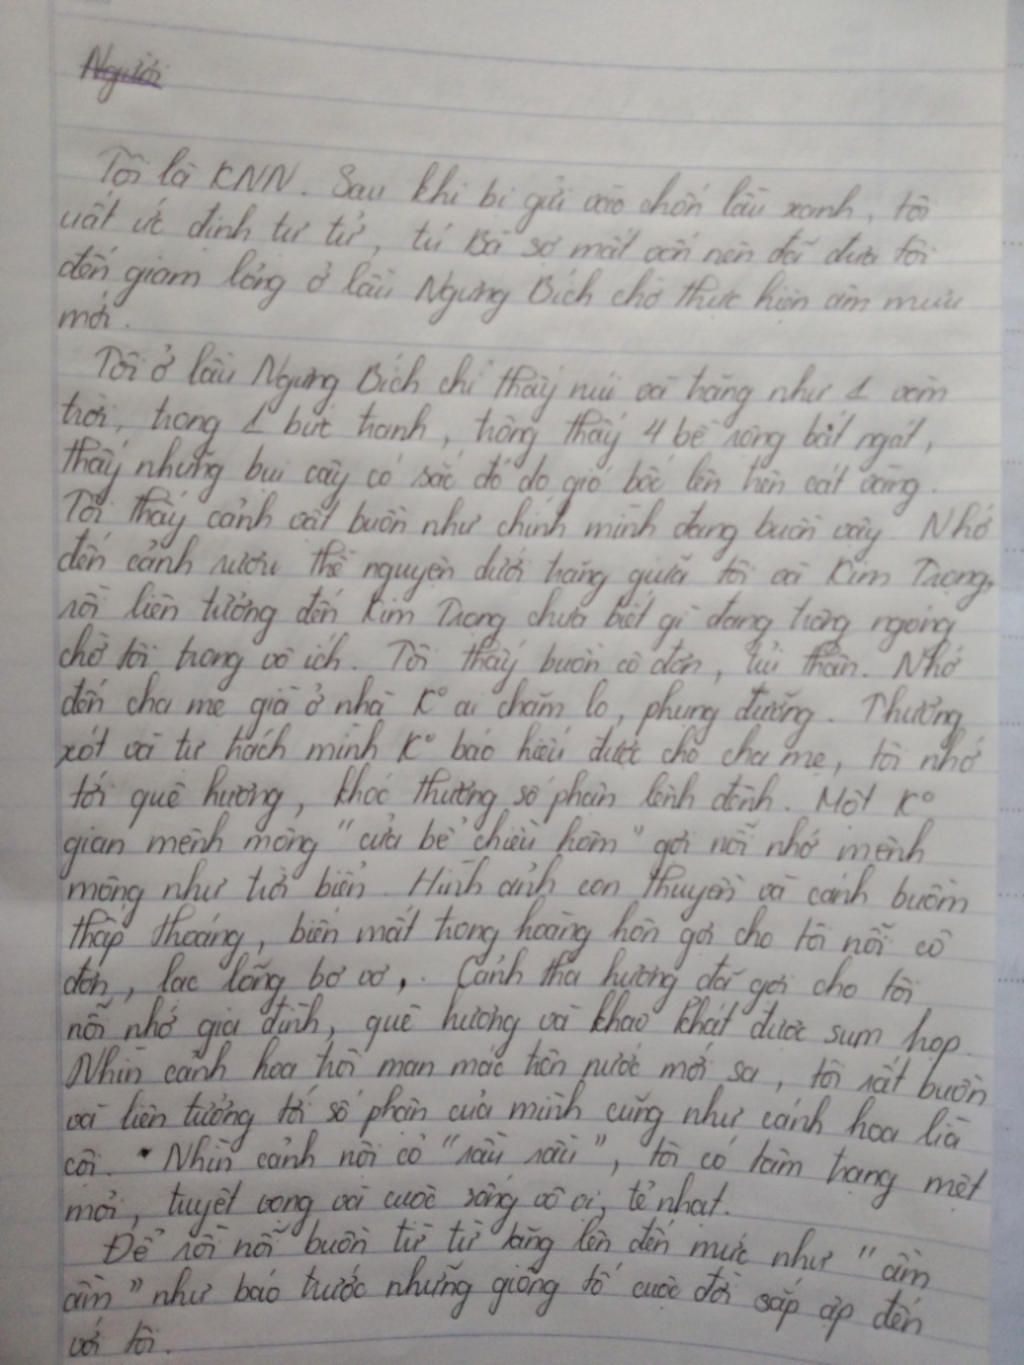 Người
Tôi là KNN. Sau khi bị gửi vào chốn lầu xanh, tôi
uất ức định tự tử, tú Bà sợ mất vốn nên đã đưa tôi
đến giam lỏng ở lầu Ngưng Bích chờ thực hiện âm mưu
mới.
Tôi ở lầu Ngưng Bích chỉ thấy núi và trăng như 1 vòm
trời, trong 1 bức tranh, trông thấy 4 bề rộng bát ngát,
thấy những bụi cây có sắc đỏ do gió bốc lên trên cát vàng.
Tôi thấy cảnh vật buồn như chính mình đang buồn vậy. Nhớ
đến cảnh rượu thề nguyện dưới trăng giữa tôi và Kim Trọng,
rồi liên tưởng đến Kim Trọng chưa biết gì đang trông ngóng
chờ tôi trong vô ích. Tôi thấy buồn cô đơn, tủi thân. Nhớ
đến cha mẹ già ở nhà K° ai chăm lo, phụng dưỡng. Thương
xót và tự trách mình K° báo hiếu được cho cha mẹ, tôi nhớ
tới quê hương, khóc thương số phận lênh đênh. Một K°
gian mênh mông "cửa bể chiều hôm" gợi nỗi nhớ mênh
mông như trời biển. Hình ảnh con thuyền và cánh buồm
thấp thoáng, biến mất trong hoàng hôn gợi cho tôi nỗi cô
đơn, lạc lõng bơ vơ,. Cảnh tha hương đã gợi cho tôi
nỗi nhớ gia đình, quê hương và khao khát được sum họp.
Nhìn cảnh hoa trôi man mác trên nước mới sa, tôi rất buồn
và liên tưởng tới số phận của mình cũng như cánh hoa lìa
cội. Nhìn cảnh nội cỏ "rầu rầu", tôi có tâm trạng mệt
mỏi, tuyệt vọng với cuộc sống vô vị, tẻ nhạt.
Để rồi nỗi buồn từ từ tăng lên đến mức như "ầm
ầm" như báo trước những giông tố cuộc đời sắp ập đến
với tôi.